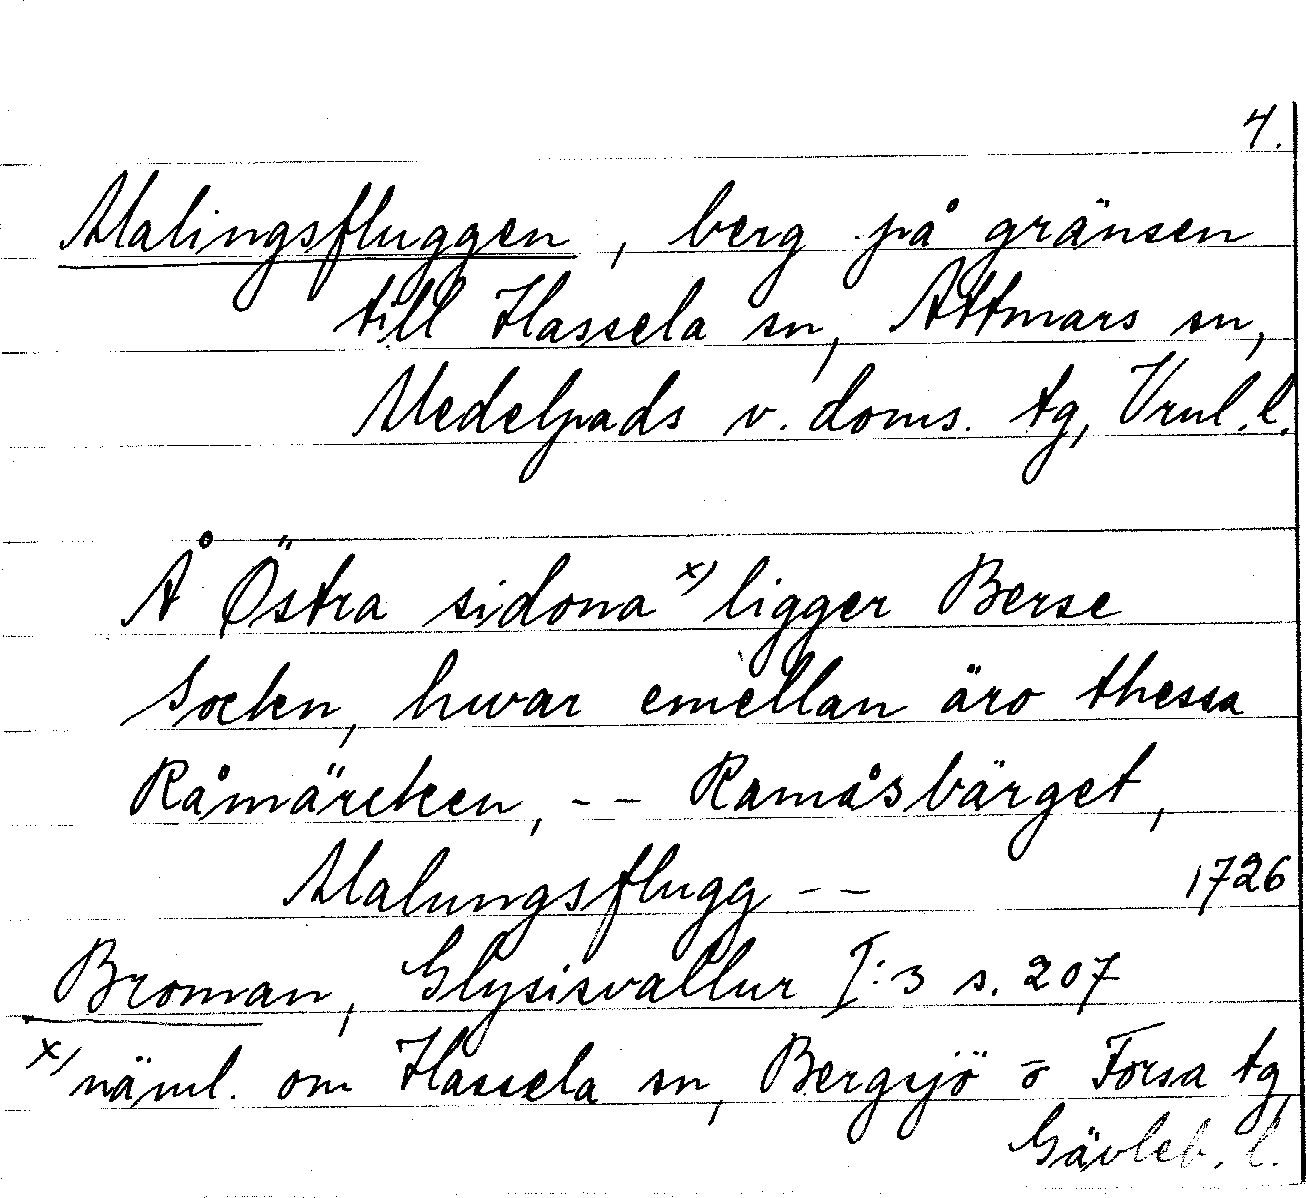 4.
Malingsfluggen, berg på gränsen
till Hassela sn, Attmars sn,
Medelpads v. doms. tg, Vrnl. l.
Å Östra sidona x) ligger Berse
Socken, hwar emellan äro thessa
Råmärcken, -- Ramåsbärget,
Malungsflugg -- 1726
Broman, Glysisvallur I:3 s. 207
x) näml. om Hassela sn, Bergsjö o Forsa tg,
Gävleb. l.